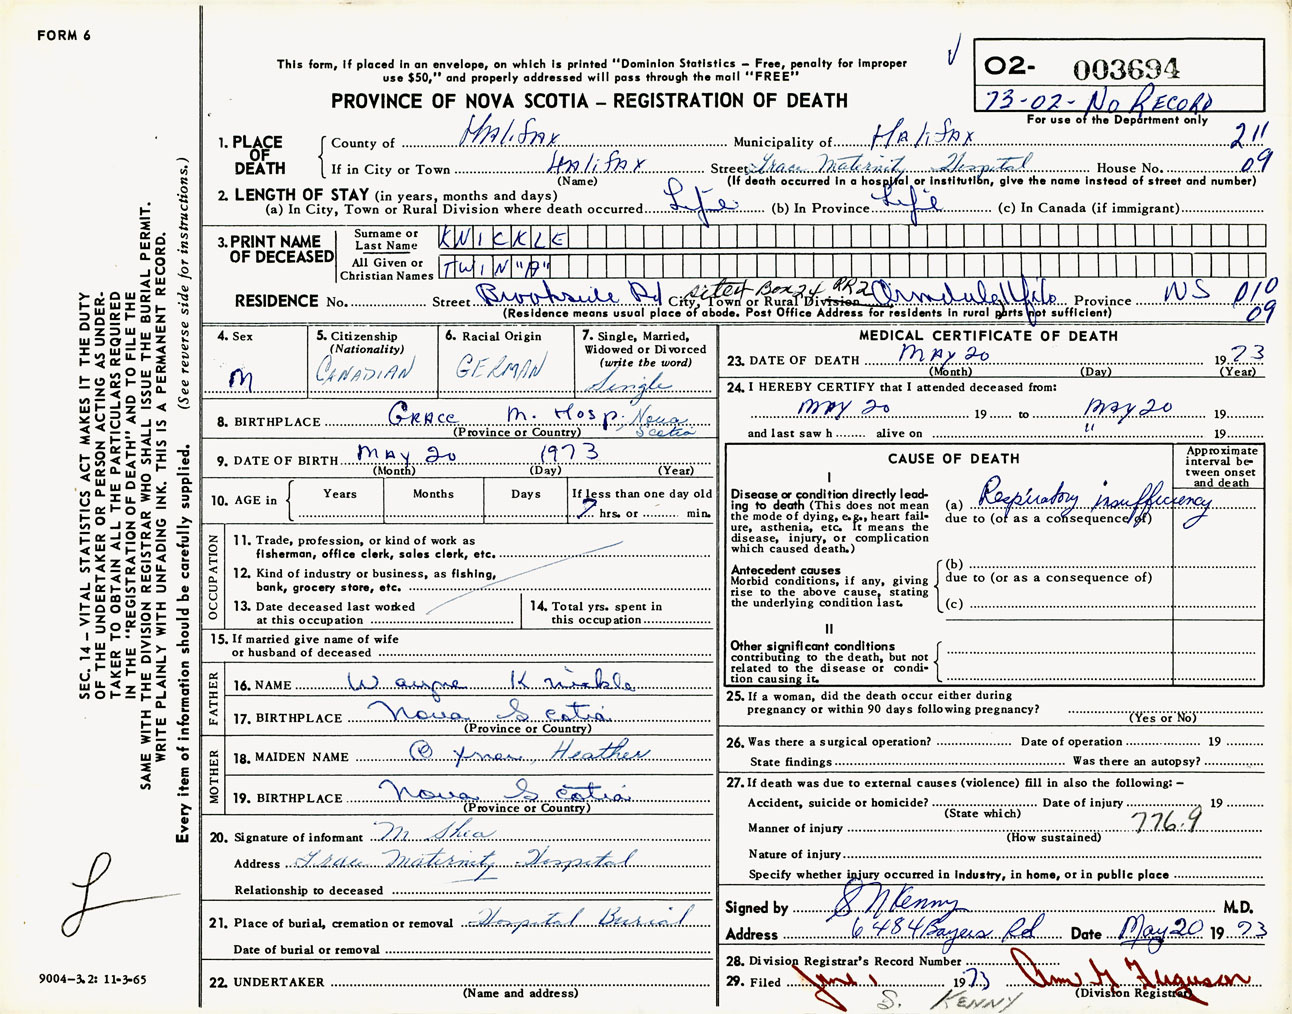 FORM 6
This form, if placed in an envelope, on which is printed "Dominion Statistics – Free, penalty for improper
use $50," and properly addressed will pass through the mail "FREE"
PROVINCE OF NOVA SCOTIA – REGISTRATION OF DEATH
O2- 003694
73-02- No RECORD
For use of the Department only
1. PLACE OF DEATH
County of Halifax Municipality of Halifax 211
If in City or Town Halifax Street Grace Maternity Hospital House No. 09
(Name) (If death occurred in a hospital or institution, give the name instead of street and number)
2. LENGTH OF STAY (in years, months and days)
(a) In City, Town or Rural Division where death occurred Life (b) In Province Life (c) In Canada (if immigrant)
3. PRINT NAME OF DECEASED
Surname or Last Name KNICKLE
All Given or Christian Names TWIN "A"
Site 4 Box 24 RR2
RESIDENCE No. Street Brookside Rd City, Town or Rural Division Armdale Hfx Province NS 010
(Residence means usual place of abode. Post Office Address for residents in rural parts not sufficient) 09
4. Sex
M
5. Citizenship
(Nationality)
CANADIAN
6. Racial Origin
GERMAN
7. Single, Married,
Widowed or Divorced
(write the word)
Single
8. BIRTHPLACE Grace M. Hosp, Nova Scotia
(Province or Country)
9. DATE OF BIRTH May 20 1973
(Month) (Day) (Year)
10. AGE in
Years Months Days If less than one day old
7 hrs. or min.
OCCUPATION
11. Trade, profession, or kind of work as
fisherman, office clerk, sales clerk, etc.
12. Kind of industry or business, as fishing,
bank, grocery store, etc.
13. Date deceased last worked
at this occupation
14. Total yrs. spent in
this occupation
15. If married give name of wife
or husband of deceased
FATHER
16. NAME Wayne Knickle
17. BIRTHPLACE Nova Scotia
(Province or Country)
MOTHER
18. MAIDEN NAME Heather
19. BIRTHPLACE Nova Scotia
(Province or Country)
20. Signature of informant M Shea
Address Grace Maternity Hospital
Relationship to deceased
21. Place of burial, cremation or removal Hospital Burial
Date of burial or removal
22. UNDERTAKER
(Name and address)
MEDICAL CERTIFICATE OF DEATH
23. DATE OF DEATH May 20 1973
(Month) (Day) (Year)
24. I HEREBY CERTIFY that I attended deceased from:
May 20 19 to May 20 19
and last saw h alive on " 19
CAUSE OF DEATH
Approximate
interval be-
tween onset
and death
I
Disease or condition directly lead-
ing to death (This does not mean
the mode of dying, e.g., heart fail-
ure, asthenia, etc. It means the
disease, injury, or complication
which caused death.)
(a) Respiratory insufficiency
due to (or as a consequence of)
Antecedent causes
Morbid conditions, if any, giving
rise to the above cause, stating
the underlying condition last.
(b)
due to (or as a consequence of)
(c)
II
Other significant conditions
contributing to the death, but not
related to the disease or condi-
tion causing it.
25. If a woman, did the death occur either during
pregnancy or within 90 days following pregnancy?
(Yes or No)
26. Was there a surgical operation? Date of operation 19
State findings Was there an autopsy?
27. If death was due to external causes (violence) fill in also the following: –
Accident, suicide or homicide? Date of injury 19
(State which)
Manner of injury 776.9
(How sustained)
Nature of injury
Specify whether injury occurred in industry, in home, or in public place
Signed by S N Kenny M.D.
Address 6484 Bayers Rd Date May 20 1973
28. Division Registrar's Record Number
29. Filed June 1 1973 Ann G Ferguson
(Division Registrar)
S. KENNY
SEC. 14 – VITAL STATISTICS ACT MAKES IT THE DUTY
OF THE UNDERTAKER OR PERSON ACTING AS UNDER-
TAKER TO OBTAIN ALL THE PARTICULARS REQUIRED
IN THE "REGISTRATION OF DEATH" AND TO FILE THE
SAME WITH THE DIVISION REGISTRAR WHO SHALL ISSUE THE BURIAL PERMIT.
WRITE PLAINLY WITH UNFADING INK. THIS IS A PERMANENT RECORD.
Every item of information should be carefully supplied. (See reverse side for instructions.)
9004-3.2: 11-3-65